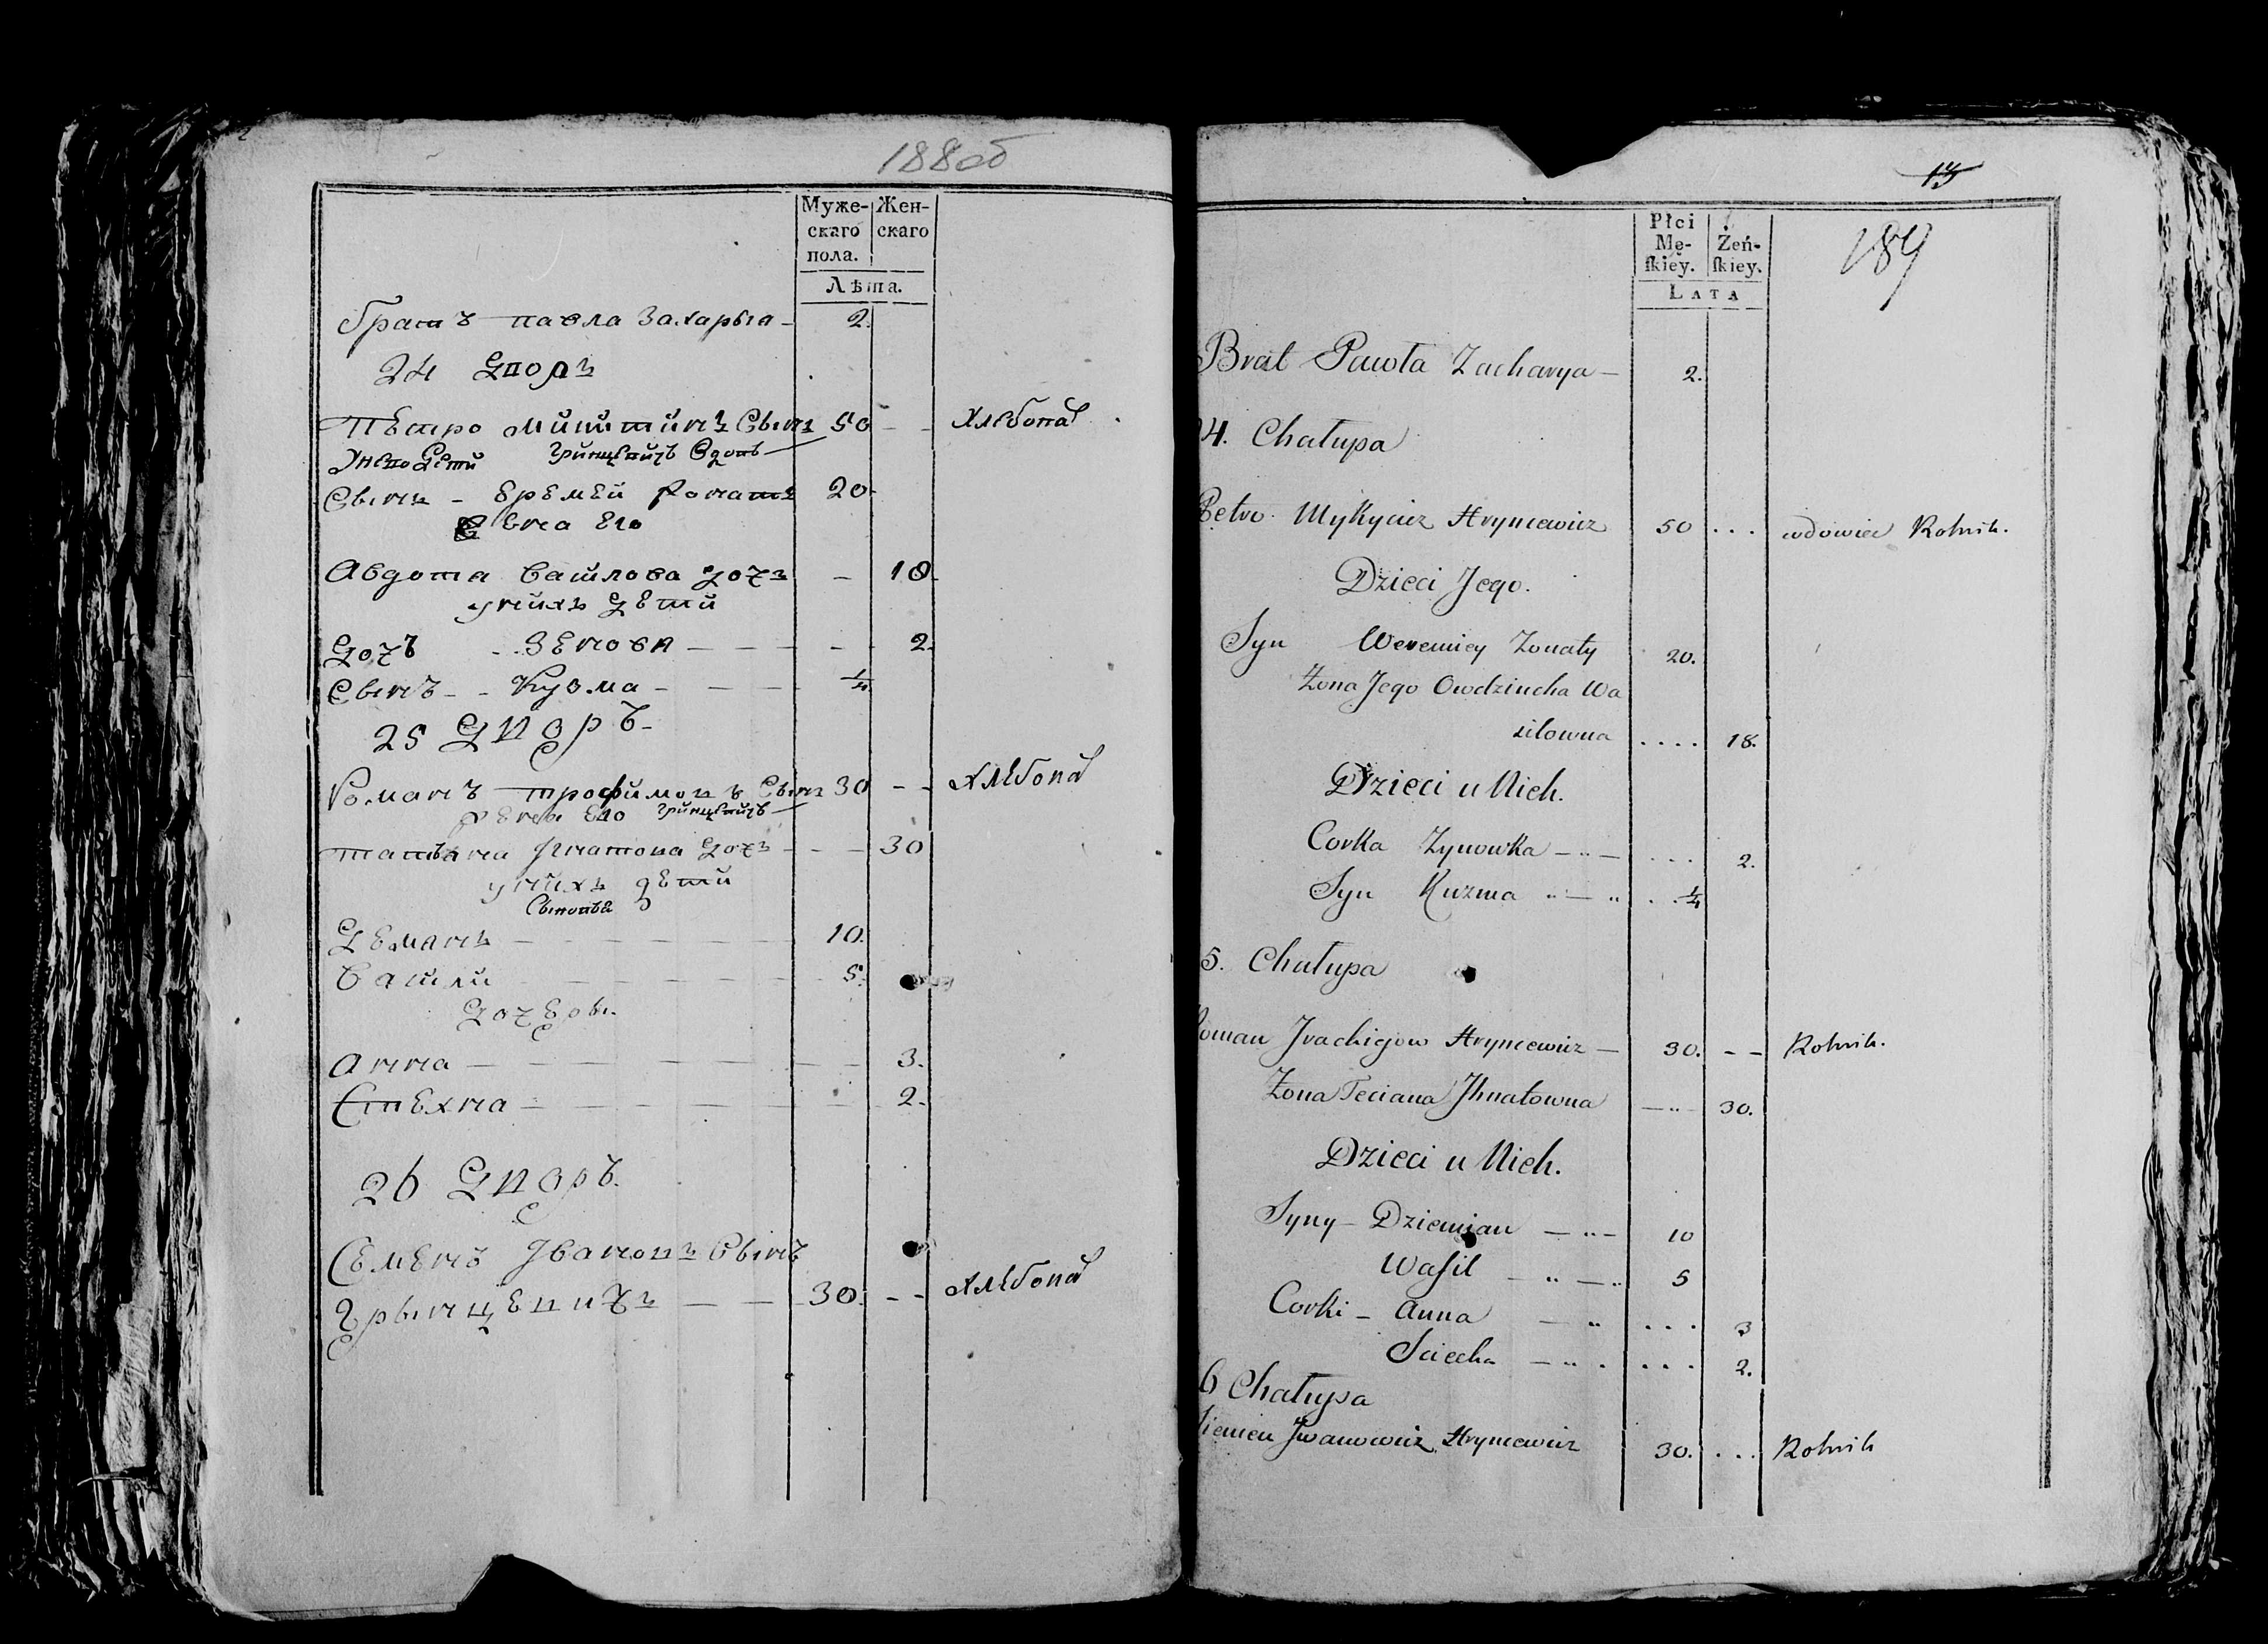 188об
Муже-
скаго
пола.
Жен-
скаго
Лѣта.
братъ павла Захарыя - 2.
24 Дворъ
Петро Микитинъ Сынъ 50 - - Хлебопа
Унево Дети Гринцевичъ Вдовъ
Сынъ - Еремей Жонатъ 20.
Жена Его
Авдотя Василова дочъ - 18.
у нихъ Дети
Дочъ - Зеновя - - - - 2.
Сынъ - - Кузма - - - 1/4
25 Дворъ -
Романъ трофимовъ Сынъ 30 - - Хлебопа
Жена Его Гринцевичъ
татьяна Игнатова Дочъ - - - 30
у нихъ дети
Сыновья
Деманъ - - - - - 10.
Васили - - - - - 5.
Дочеры.
Анна - - - - - - 3.
Стехна - - - - - - 2.
26 Дворъ.
Семенъ Ивановъ Сынъ
Грынцевичъ - - 30. - - Хлебопа
13
189
Płci
Mę-
ſkiey.
Żeń-
ſkiey.
LATA
Brat Pawła Zacharya - 2.
4. Chałupa
Petro Mykycicz Hryncewicz 50 ... wdowiec Rolnik.
Dzieci Jego.
Syn Weremiey Zonaty 20.
Żona Jego Owdziucha Wa
silowna .... 18.
Dzieci u Nich.
Corka Zynowka - .. - ... 2.
Syn Kuzma .. - .. . . 1/4
5. Chałupa
oman Trachigow Hryncewicz - 30. - - Rolnik.
Żona Teciana Jhnatowna - .. - 30.
Dzieci u Nich.
Syny - Dziemian - .. - 10
Waſil - .. - .. 5
Corki - Anna - .. ... 3
Sciecha - .. . ... 2.
6 Chałupa
iemien Jwanowicz Hryncewicz 30. ... Rolnik